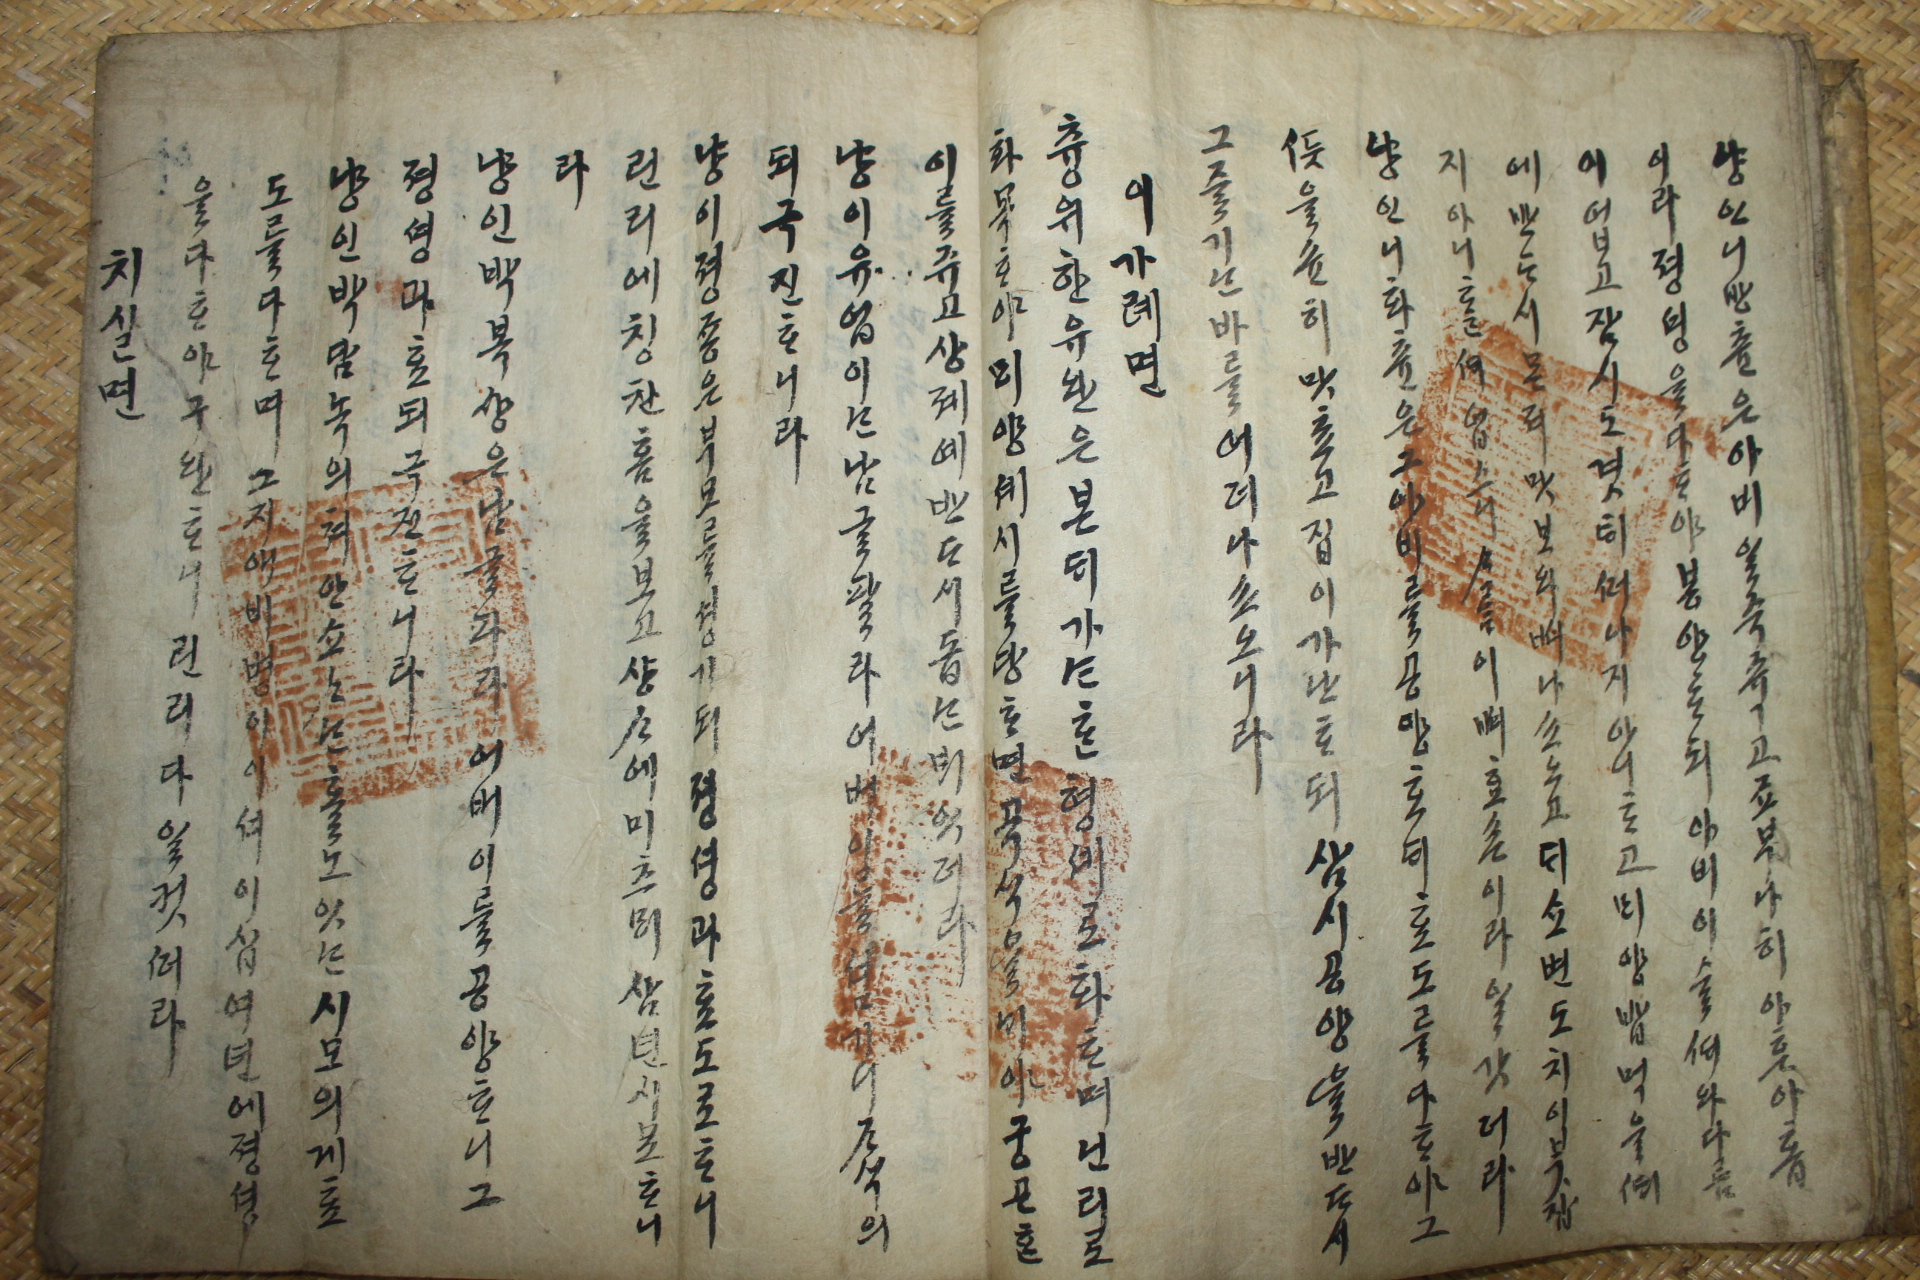 냥인니방츌은아비일죽죽고죠부나히아흔아홉
이라졍셩을다ᄒᆞ야봉양ᄒᆞ되아비이슐셔와다름
이업고잠시도겻ᄐᆡ셔나지아니ᄒᆞ고ᄆᆡ양밥먹을ᄯᆡ
에반ᄃᆞ시몬져맛보와
지아니ᄒᆞᆯ 업스니 사ᄅᆞᆷ이 효손이라일갓더라
냥인니화츈은그아비ᄅᆞᆯ공양ᄒᆞᄃᆡ효도ᄅᆞᆯ다ᄒᆞ야그
ᄯᅳᆺ을슌히맛초고집이가난ᄒᆞ되삼시공양을반ᄃᆞ시
그즐기ᄂᆞᆫ바ᄅᆞᆯ어더나쇼노니라
이가례면
츙위한유완은본ᄃᆡ가ᄂᆞᆫᄒᆞᆫ형셰로화ᄒᆞ며닌리로
화목ᄒᆞ야ᄆᆡ양셰시ᄅᆞᆯ당ᄒᆞ면곡식을ᄂᆡ야궁곤ᄒᆞᆫ
이ᄅᆞᆯ쥬고상졔예반ᄃᆞ시돕ᄂᆞᆫᄇᆡ잇더라
냥이유업이ᄂᆞᆫ남글팔라어버이ᄅᆞᆯ셤기니ᄌᆞ식의
되극진ᄒᆞ니라
냥이졍죵은부모ᄅᆞᆯ셤기되졍셩과효도로ᄒᆞ니
린리에칭찬홈을보고상ᄉᆞ에미츠ᄆᆡ삼년시묘ᄒᆞ니
라
냥인박복샹은남글파라어버이ᄅᆞᆯ공양ᄒᆞ니그
졍셩과효되극진ᄒᆞ니라
냥인박담녹의쳐안쇼ᄂᆞᆫ홀노잇ᄂᆞᆫ시모의게효
도ᄅᆞᆯ다ᄒᆞ며그지애비병이이셔이십여년에졍셩
을다ᄒᆞ야구완ᄒᆞ니린리다일컷더라
치실면